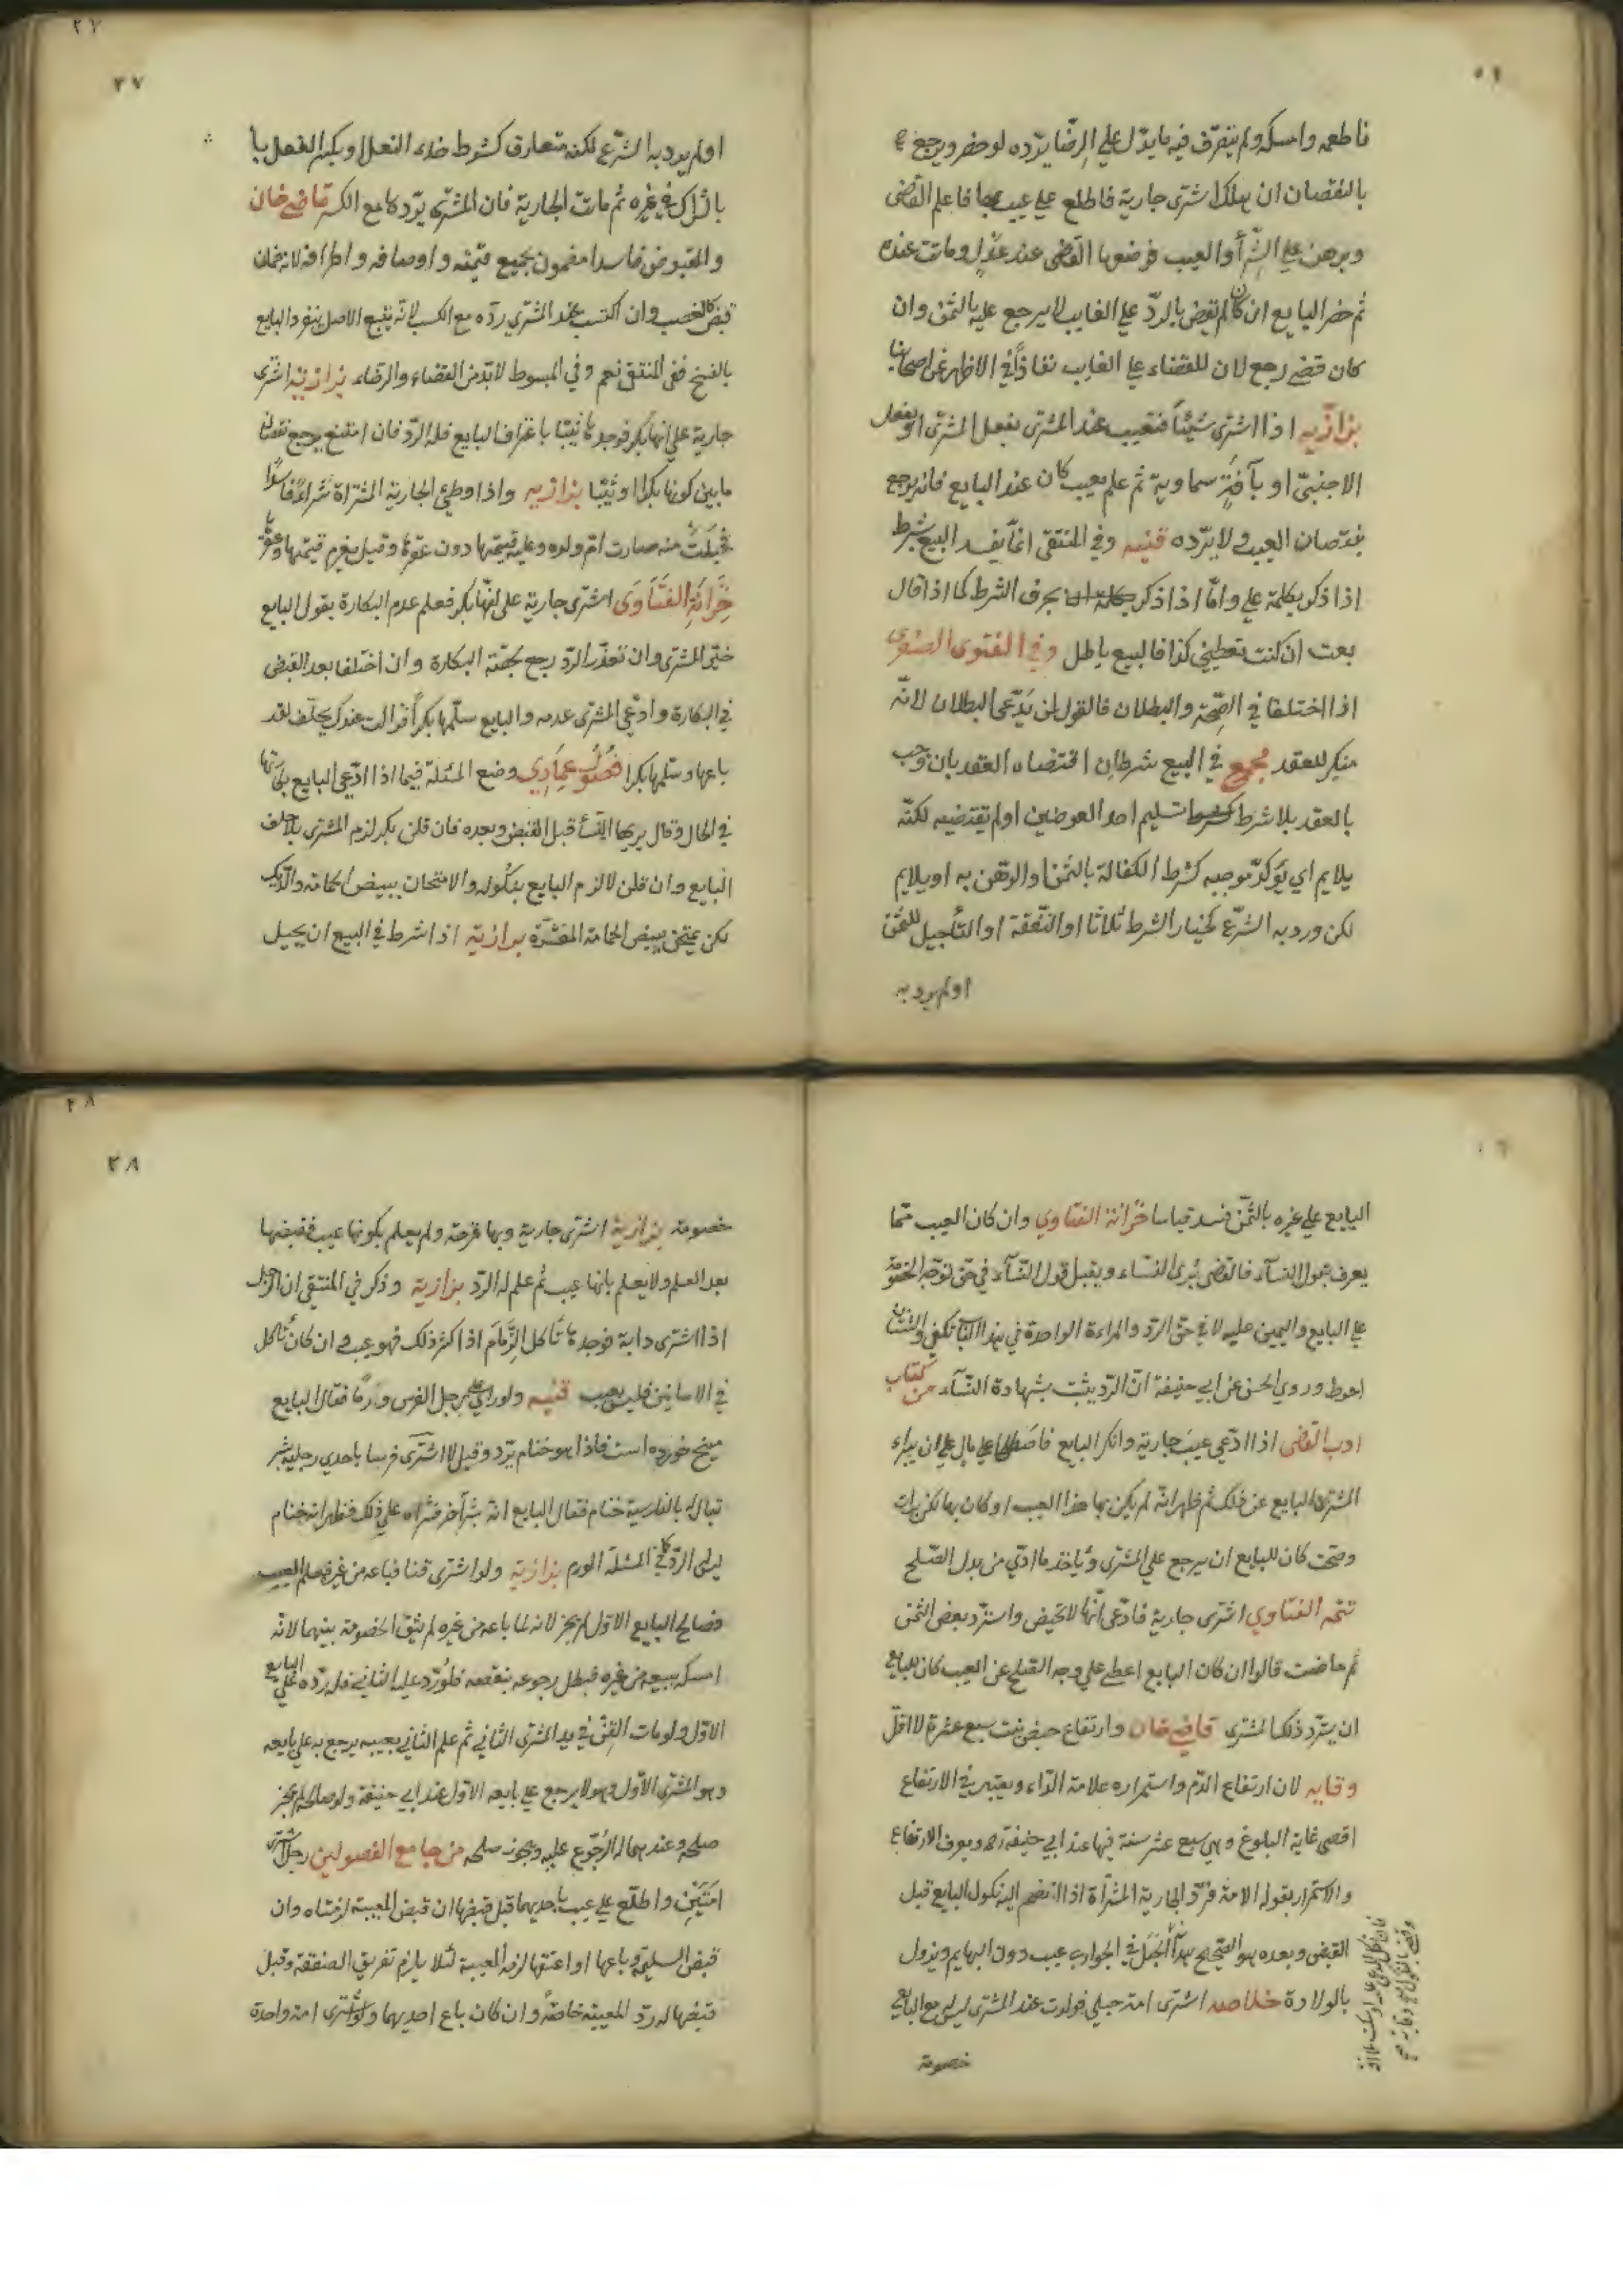 فاطعمه وامسكه ولم يتصرّف فيه ما يدلّ على الرضّا يرّده لو حضر ويرجع
بالنقصان ان هلك اشترى جارية فاطلع على عيب بها فاعلم القاضى
وبرهن على الشرآ والعيب فوضعها القاضى عند عدل وماتت عنده
ثم حضر البايع ان كان لم يقض بالردّ على الغايب لا يرجع عليه بالثمن وان
كان قضى رجع لان للقضاء على الغايب نفاذاً في الاظهر عن اصحابنا
بزازيه اذا اشترى شيئاً فتعيب عند المشترى بفعل المشترى او بفعل
الاجنبىّ او بآفةٍ سماوية ثم علم بعيب كان عند البايع فانه يرجع
بنقصان العيب ولا يرّده قنيه وفي المنتقى انمّا يفسد البيع بشرط
اذا ذكر بكلمة على وامّا اذا ذكر بحرف الشرط كما اذا قال
بعت ان كنت تعطينى كذا فالبيع باطل وفي الفتوى الصغرى
اذا اختلفا في الصّحة والبطلان فالقول لمن يَدّعى البطلان لانّه
منكر للعقد مجمع في البيع شرطان اقتضاه العقد بان وجب
بالعقد بلا شرط كشرط تسليم احد العوضين او لم يقتضيه لكنّه
يلايم اي يؤكدّ موجبه كشرط الكفالة بالثمن والرهن به او يلايم
لكن ورد به الشرّع كخيار الشرط ثلاثا او النّفقة او التأجيل للثمن
او لم يرد به
او لم يرد به الشرّع لكنه متعارف كشرط حذاء النعل او بكسر القفل يا
باتراك في غيره ثم ماتت الجارية فان المشترى يرّدها مع الكسر قاضى خان
والمقبوض فاسدا مضمون بجميع قيمته واوصافه واطرافه لانه ضمان
قبض كالغصب وان اكتسب عند المشترى ردّه مع الكسب لانّه يتبع الاصل
بالفسخ ففى المنتقى نعم وفي المبسوط لابّد من القضاء والرضاء بزازيه اشترى
جارية على انها بكر فوجدها ثيّبا باعتراف البايع فله الرّد فان امتنع يرجع بنقصان
ما بين كونها بكرا وثيّبا بزازيه واذا وطئ الجارية المشتراة شراءً فاسداً
فحبلت منه صارت ام ولده وعليه قيمتها دون عقرها وقيل يغرم قيمتها وعقرها
خزانة الفتاوى اشترى جارية على انهّا بكر فعلم عدم البكارة بقول البايع
خيّر المشترى وان تعذّر الرّد رجع بحصّة البكارة وان اختلفا بعد القبض
في البكارة وادّعى المشترى عدمه والبايع سلّمها بكراً فزالت عندك يحلّف لقد
باعها وسلّمها بكرا فصول عمادى وضع المسئلة فيما اذا ادّعى البايع بكارتها
في الحال وقال يريها النسآء قبل القبض وبعده فان قلن بكر لزم المشترى بلا حلف
البايع وان قلن لا لزم البايع بنكوله والامتحان ببيض الحمامة والدّيك
لكن يمتحن ببيض الحمامة المقشّرة بزازية اذا شرط في البيع ان يحيل
البايع على غيره بالثمّن فسد قياسا خزانة الفتاوى وان كان العيب ممّا
يعرف بقول النسآء فالقاضى يُرى النساء ويقبل قول النسآء في حق توجّه الخصومة
على البايع واليمين عليه لا في حق الردّ والمراءة الواحدة في هذا الباب تكفى والثنتان
احوط وروى الحسن عن ابى حنيفة انّ الردّ يثبت بشهادة النّسآء من كتاب
ادب القاضى اذا ادّعى عيب جارية وانكر البايع فاصطلحا على مال على ان يبراء
المشترى البايع عن ذلك ثم ظهر انه لم يكن بها هذا العيب او كان بها لكن برات
وصحت كان للبايع ان يرجع على المشترى ويأخذ ما ادّى من بدل الصّلح
تتمه الفتاوى اشترى جارية فادّعى انّها لا تحيض واسترد بعض الثمن
ثم حاضت قالوا ان كان البايع اعطى على وجه الصّلح عن العيب كان للبايع
ان يسترّد ذلك المشترى قاضى خان وارتفاع حيض بنت سبع عشرة لا اقلّ
وقايه لان ارتفاع الدّم واستمراره علامة الدّاء ويعتبر في الارتفاع
اقصى غاية البلوغ وهى سبع عشر سنة فيها عند ابى حنيفة رحه ويعرف الارتفاع
والاستمرار بقول الامة فترّد الجارية المشتراة اذا انضم اليه نكول البايع قبل
القبض وبعده هو الصّحيح هدآ الحَبَل في الجوارى عيب دون البهايم ويزول
بالولادة خلاصه اشترى امة حبلى فولدت عند المشترى ليس مع البايع
خصومة
خصومة بزازية اشترى جارية وبها قرحة ولم يعلم بكونها عيب فقبضها
بعد العلم ولا يعلم بانها عيب ثم علم له الرّد بزازية وذكر في المنتقى ان الرجل
اذا اشترى دابة فوجدها تأكل الزّمام اذا كثر ذلك فهو عيب وان كان تأكل
في الاحايين فليس بعيب قنيه ولو راى على رجل الفرس ورماً فقال البايع
ميخ خورده است فاذا هو خنام يرّد وقيل لا اشترى فرسا باحدى رجليه بثر
يقال له بالفارسية خنام فقال البايع انه بثر آخر فشراه على ذلك فظهر انه خنام
ليس له الرّد كما في المسئلة الورم بزازية ولو اشترى قنا فباعه من غيره فعلم العيب
فصالح البايع الاوّل لم يجز لانه لما باعه من غيره لم تبق الخصومة بينهما لانه
امسكه ببيعه من غيره فبطل رجوعه بنقصه فلو رُدّ عليه الثانى فله ردّه على البايع
الاوّل ولو مات القنّ في يد المشترى الثانى ثم علم الثانى بعيبه يرجع به على بايعه
وهو المشترى الاوّل وهو لا يرجع على بايعه الاوّل عند ابى حنيفة ولو صالحه لم يجز
صلحه وعندهما له الرّجوع عليه ويجوز صلحه من جامع الفصولين رجل اشترى
امَتَيْن واطلع على عيب باحديهما قبل قبضها ان قبض المعيبة لزمتاه وان
قبض السليمة وباعها او اعتقها لزمه المعيبة لئلا يلزم تفريق الصفقة وقبل
قبضها له ردّ المعيبة خاصّة وان كان باع احديهما ولو اشترى امة واحدة